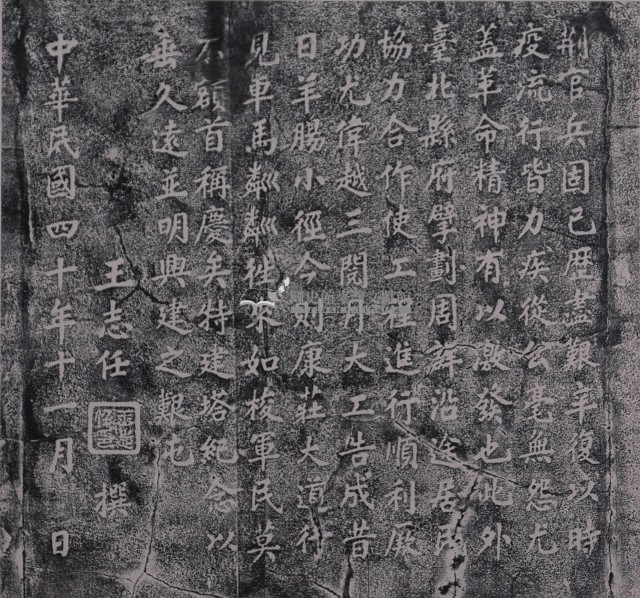 荆官兵固已歷盡艱辛復以時
疫流行皆力疾從公毫無怨尤
蓋革命精神有以激發也此外
臺北縣府擘劃周詳沿途居民
協力合作使工程進行順利厥
功尤偉越三閱月大工告成昔
日羊腸小徑今則康莊大道行
見車馬粼粼往來如梭軍民莫
不額首稱慶矣特建塔紀念以
垂久遠並明興建之艱屯
王志任 撰
中華民國四十年十一月 日